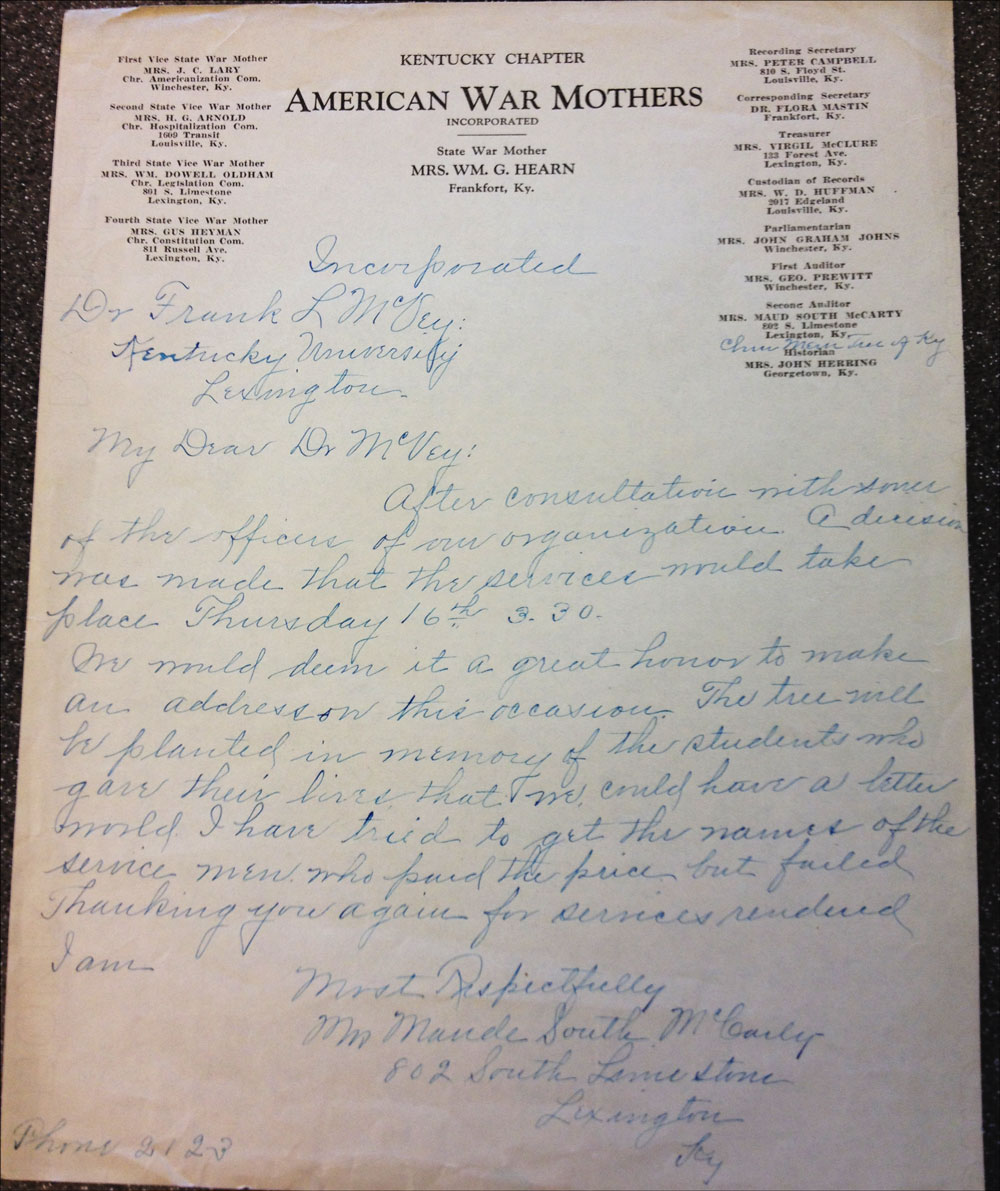 KENTUCKY CHAPTER
AMERICAN WAR MOTHERS
INCORPORATED
State War Mother
MRS. WM. G. HEARN
Frankfort, Ky.
First Vice State War Mother
MRS. J. C. LARY
Chr. Americanization Com.
Winchester, Ky.
Second State Vice War Mother
MRS. H. G. ARNOLD
Chr. Hospitalization Com.
1609 Transit
Louisville, Ky.
Third State Vice War Mother
MRS. WM. DOWELL OLDHAM
Chr. Legislation Com.
801 S. Limestone
Lexington, Ky.
Fourth State Vice War Mother
MRS. GUS HEYMAN
Chr. Constitution Com.
811 Russell Ave.
Lexington, Ky.
Recording Secretary
MRS. PETER CAMPBELL
810 S. Floyd St.
Louisville, Ky.
Corresponding Secretary
DR. FLORA MASTIN
Frankfort, Ky.
Treasurer
MRS. VIRGIL McCLURE
133 Forest Ave.
Lexington, Ky.
Custodian of Records
MRS. W. D. HUFFMAN
2017 Edgeland
Louisville, Ky.
Parliamentarian
MRS. JOHN GRAHAM JOHNS
Winchester, Ky.
First Auditor
MRS. GEO. PREWITT
Winchester, Ky.
Second Auditor
MRS. MAUD SOUTH McCARTY
802 S. Limestone
Lexington, Ky.
Mem tree of Ky
Historian
MRS. JOHN HERRING
Georgetown, Ky.
Incorporated
Dr Frank L McVey:
Kentucky University
Lexington.
My Dear Dr McVey:
After consultation with some
of the officers of our organization A decision
was made that the services would take
place Thursday 16th 3.30.
We would deem it a great honor to make
an address on this occasion. The tree will
be planted in memory of the students who
gave their lives that we could have a better
world. I have tried to get the names of the
service men who paid the price but failed
Thanking you again for services rendered
I am
Most Respectfully
Mrs Maude South McCarty
802 South Limestone
Lexington
Ky
Phone 2123